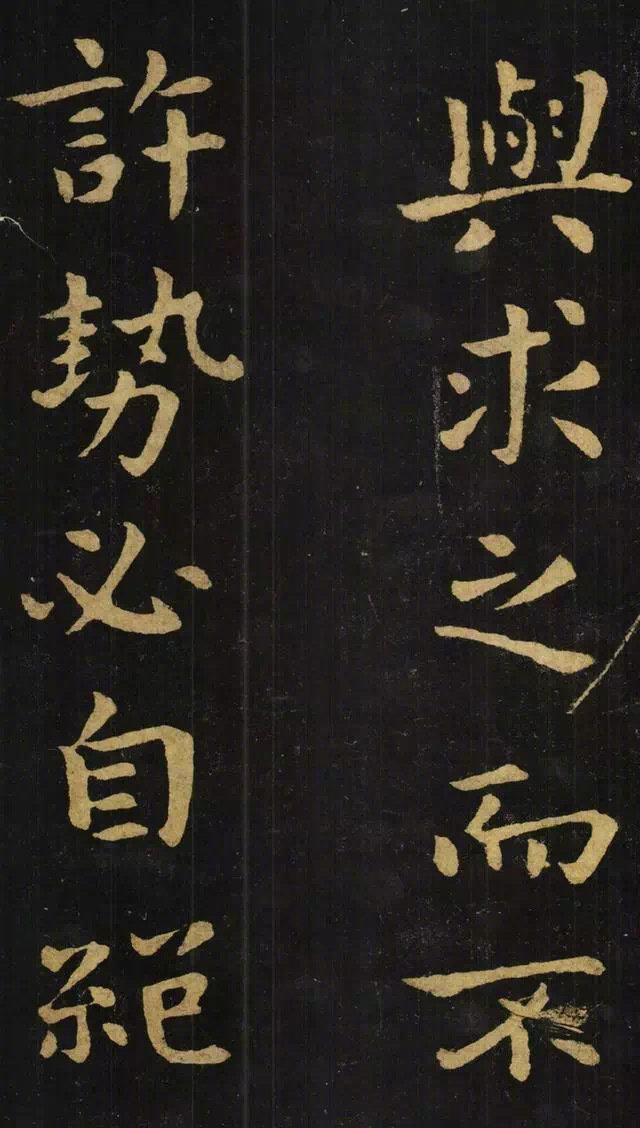 與求之而不
許勢必自絶